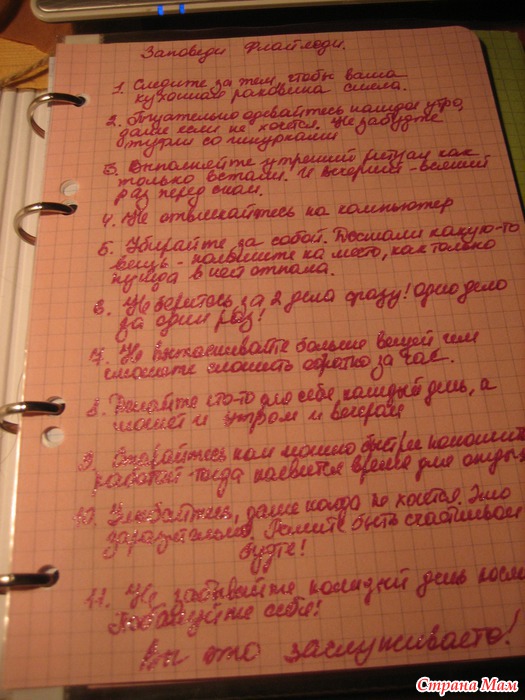 Заповеди Флайледи.
1. Следите за тем, чтобы ваша
кухонная раковина сияла.
2. Тщательно одевайтесь каждое утро,
даже если не хочется. Не забудьте
туфли со шнурками
3. Выполняйте утренний ритуал как
только встали. И вечерний - всякий
раз перед сном.
4. Не отвлекайтесь на компьютер
5. Убирайте за собой. Достали какую-то
вещь - положите на место, как только
нужда в ней отпала.
6. Не беритесь за 2 дела сразу! одно дело
за один раз!
7. Не вытаскивайте больше вещей чем
сможете сложить обратно за час.
8. Делайте что-то для себя каждый день, а
может и утром и вечером
9. Старайтесь как можно быстрее
работать - тогда появится время для отдыха
10. Улыбайтесь, даже когда не хочется. Это
заразительно. быть счастливой
будте!
11. Не забывайте каждый день
себя!
Вы это заслуживаете!
Страна Мам